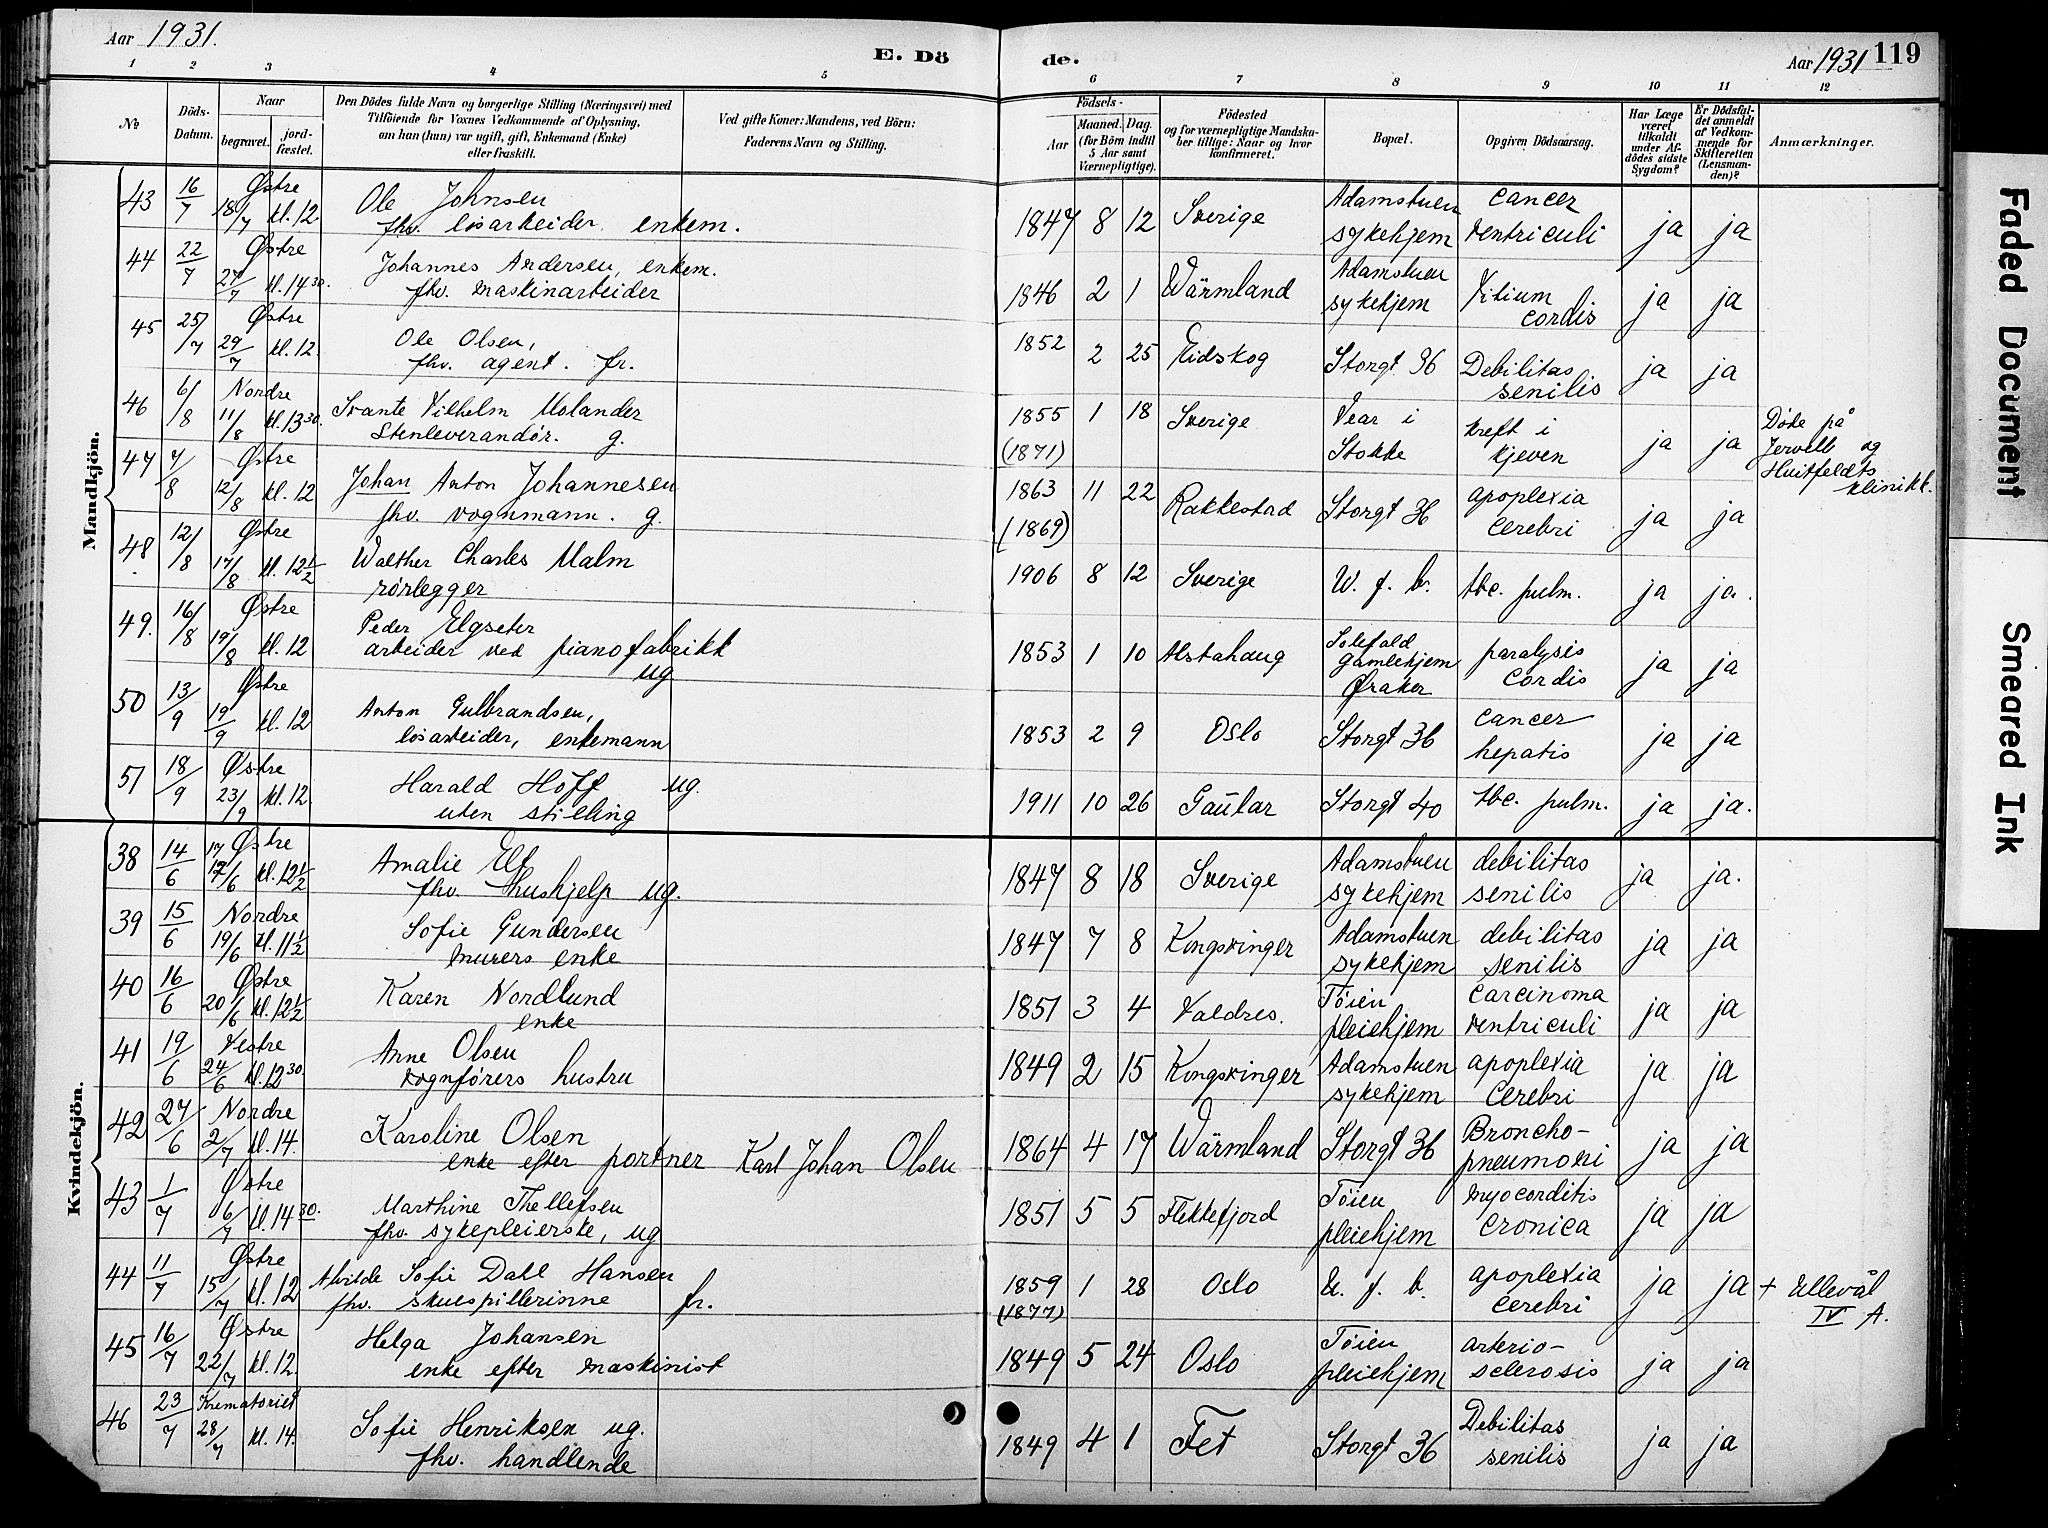 Aar 1931.
E. Dö
de.
Aar 1931 119
1 2 3 4 5
6 7 8 9 10 11 12
No
Döds-
Datum.
Naar
begravet.
jord-
fæstet.
Den Dödes fulde Navn og borgerlige Stilling (Næringsvei) med
Tilföiende for Voxnes Vedkommende af Oplysning,
om han (hun) var ugift, gift, Enkemand (Enke)
eller fraskilt.
Ved gifte Koner: Mandens, ved Börn:
Faderens Navn og Stilling.
Födsels-
Aar
Maaned.
Dag.
(for Börn indtil
5 Aar samt
Værnepligtige).
Födested
og for værnepligtige Mandska-
ber tillige: Naar og hvor
konfirmeret.
Bopæl.
Opgiven Dödsaarsag.
Har Læge
været
tilkaldt
under Af-
dödes sidste
Sygdom?
Er Dödsfal-
det anmeldt
af Vedkom-
mende for
Skifteretten
(Lensman-
den)?
Anmærkninger.
Mandkjön.
43 16/7 Østre 18/7 kl. 12 Ole Johnsen
fhv. løsarbeider, enkem.
1847 8 12 Sverige Adamstuen sykehjem cancer ventriculi ja ja
44 22/7 Østre 27/7 kl. 14 30. Johannes Andersen, enkem.
fhv. maskinarbeider
1846 2 1 Wärmland Adamstuen sykehjem Vitium cordis ja ja
45 25/7 Østre 29/7 kl. 12. Ole Olsen,
fhv. agent. fr.
1852 2 25 Eidskog Storgt 36 Debilitas senilis ja ja
46 6/8 Nordre 11/8 kl. 13 30. Svante Vilhelm Molander
Stenleverandør. g.
1855 (1871) 1 18 Sverige Vear i Stokke kreft i kjeven ja ja Døde på Jervells og Huitfeldts klinikk.
47 7/8 Østre 12/8 kl. 12 Johan Anton Johannesen
fhv. vognmann. g.
1863 (1869) 11 22 Rakkestad Storgt 36 apoplexia cerebri ja ja
48 12/8 Østre 17/8 kl. 12 1/2 Walther Charles Malm
rørlegger
1906 8 12 Sverige W. f. b. tbc. pulm. ja ja.
49. 16/8 Østre 19/8 kl. 12 Peder Elgseter
arbeider ved pianofabrikk
ug
1853 1 10 Alstahaug Solefald gamlehjem Øraker paralysis cordis ja ja
50 13/9 Østre 19/9 kl. 12 Anton Gulbrandsen,
løsarbeider, enkemann
1853 2 9 Oslo Storgt 36 cancer hepatis ja ja
51 18/9 Østre 23/9 kl. 12. Harald Hoff ug.
uten stilling
1911 10 26 Gaular Storgt 40 tbc. pulm. ja ja.
Kvindekjön.
38 14/6 Østre 17/6 kl. 12 1/2 Amalie Elf
fhv. hushjelp ug.
1847 8 18 Sverige Adamstuen sykehjem debilitas senilis ja ja.
39 15/6 Nordre 19/6 kl. 11 1/2 Sofie Gundersen
murers enke
1847 7 8 Kongsvinger Adamstuen sykehjem debilitas senilis ja ja
40 16/6 Østre 20/6 kl. 12 1/2 Karen Nordlund
enke
1851 3 4 Valdres. Tøien pleiehjem Carcinoma ventriculi ja ja
41 19/6 Vestre 24/6 kl. 12 30. Anne Olsen
vognførers hustru
1849 2 15 Kongsvinger Adamstuen sykehjem apoplexia cerebri ja ja
42 27/6 Nordre 2/7 kl. 14. Karoline Olsen
enke efter portner Karl Johan Olsen
1864 4 17 Wärmland Storgt 36 Broncho-pneumoni ja ja
43 1/7 Østre 6/7 kl. 14 30. Marthine Thellefsen
fhv. sykepleierske, ug
1851 5 5 Flekkefjord Tøien pleiehjem myocorditis cronica ja ja
44 11/7 Østre 15/7 kl. 12 Alvilde Sofie Dahl Hansen
fhv. skuespillerinne fr.
1859 (1877) 1 28 Oslo U. f. b. apoplexia cerebri ja ja + Ullevål IV A.
45 16/7 Østre 22/7 kl. 12. Helga Johansen
enke efter maskinist
1849 5 24 Oslo Tøien pleiehjem arterio-sclerosis ja ja
46 23/7 Krematoriet 28/7 kl. 14. Sofie Henriksen ug.
fhv. handlende
1849 4 1 Fet Storgt 36 Debilitas senilis ja ja
Faded Document
Smeared Ink